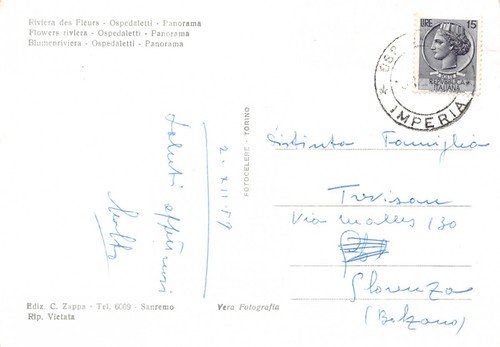 Riviera dei Fleurs - Ospedaletti - Panorama
Flowers riviera - Ospedaletti - Panorama
Blumenriviera - Ospedaletti - Panorama
LIRE 15
REPVBBLICA
ITALIANA
OSP
IMPERIA
FOTOCELERE - TORINO
2.XII.59
Saluti
Distinta Famiglia
Trevisan
Via malles 130
Glorenza
(Bolzano)
Ediz. C. Zappa - Tel. 6089 - Sanremo
Rip. Vietata
Vera Fotografia